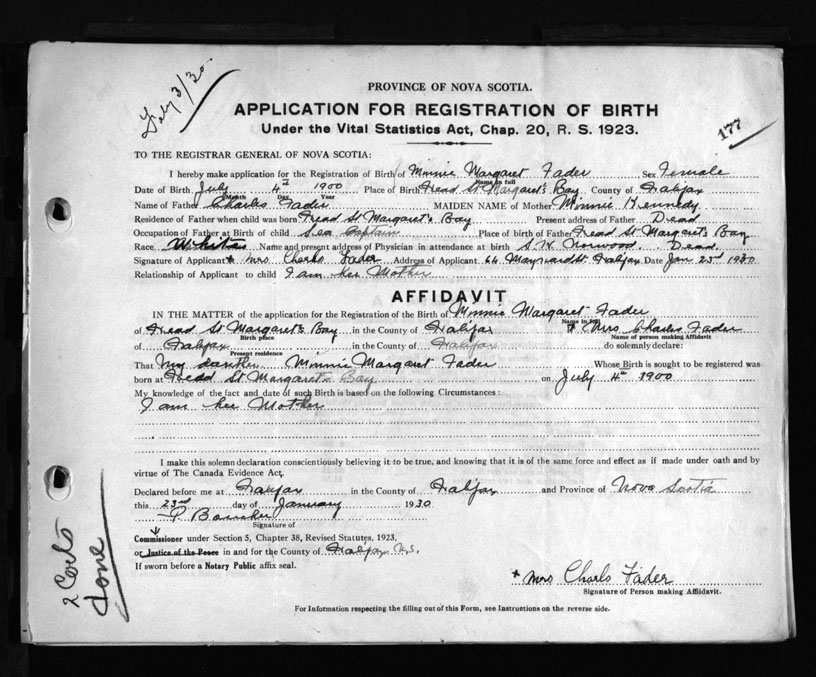 Feby 3/30
PROVINCE OF NOVA SCOTIA.
APPLICATION FOR REGISTRATION OF BIRTH
Under the Vital Statistics Act, Chap. 20, R. S. 1923.
177
TO THE REGISTRAR GENERAL OF NOVA SCOTIA:
I hereby make application for the Registration of Birth of Minnie Margaret Fader Sex Female
Name in full
Date of Birth July 4th 1900 Place of Birth Head St. Margaret's Bay County of Halifax
Month Day Year
Name of Father Charles Fader MAIDEN NAME of Mother Minnie Kennedy
Residence of Father when child was born Head St. Margaret's Bay Present address of Father Dead
Occupation of Father at Birth of child Sea Captain Place of birth of Father Head St. Margaret's Bay
Race Name and present address of Physician in attendance at birth S. W. Norwood. Dead.
Signature of Applicant Mrs Charls Fader Address of Applicant 64 Maynard St. Halifax Date Jan 23rd 1930
Relationship of Applicant to child I am her Mother
AFFIDAVIT
IN THE MATTER of the application for the Registration of the Birth of Minnie Margaret Fader
Name in full
of Head St. Margaret's Bay in the County of Halifax Mrs Charles Fader
Birth place Name of person making Affidavit
of Halifax in the County of Halifax do solemnly declare:
Present residence
That My daughter Minnie Margaret Fader Whose Birth is sought to be registered was
born at Head St. Margarets Bay on July 4th 1900
My knowledge of the fact and date of such Birth is based on the following Circumstances:
I am her Mother
I make this solemn declaration conscientiously believing it to be true, and knowing that it is of the same force and effect as if made under oath and by
virtue of The Canada Evidence Act.
Declared before me at Halifax in the County of Halifax and Province of Nova Scotia
this 23rd day of January 1930
Signature of
Commissioner under Section 5, Chapter 38, Revised Statutes, 1923,
or Justice of the Peace in and for the County of Halifax N.S.
If sworn before a Notary Public affix seal.
Mrs Charls Fader
Signature of Person making Affidavit.
For Information respecting the filling out of this Form, see Instructions on the reverse side.
2 Certs
done